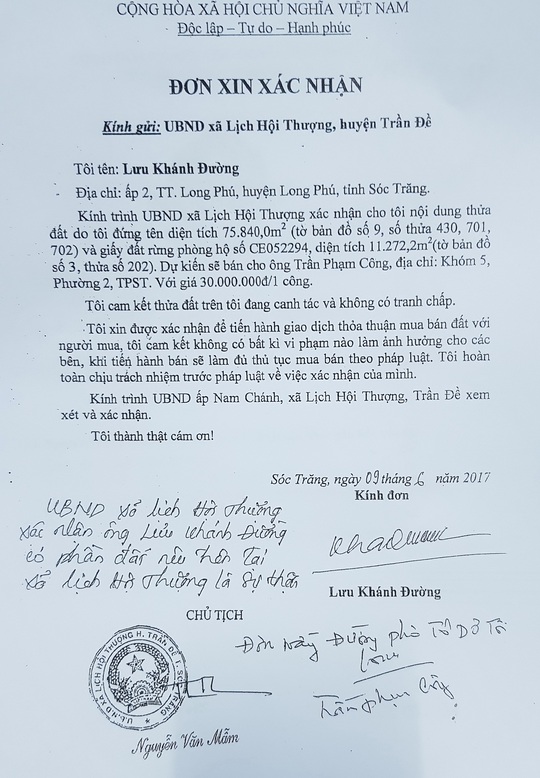 CỘNG HÒA XÃ HỘI CHỦ NGHĨA VIỆT NAM
Độc lập – Tự do – Hạnh phúc
ĐƠN XIN XÁC NHẬN
Kính gửi: UBND xã Lịch Hội Thượng, huyện Trần Đề
Tôi tên: Lưu Khánh Đường
- Địa chỉ: ấp 2, TT. Long Phú, huyện Long Phú, tỉnh Sóc Trăng.
Kính trình UBND xã Lịch Hội Thượng xác nhận cho tôi nội dung thửa
đất do tôi đứng tên diện tích 75.840,0m² (tờ bản đồ số 9, số thửa 430, 701,
702) và giấy đất rừng phòng hộ số CE052294, diện tích 11.272,2m²(tờ bản đồ
số 3, thửa số 202). Dự kiến sẽ bán cho ông Trần Phạm Công, địa chỉ: Khóm 5,
Phường 2, TPST. Với giá 30.000.000đ/1 công.
Tôi cam kết thửa đất trên tôi đang canh tác và không có tranh chấp.
Tôi xin được xác nhận để tiến hành giao dịch thỏa thuận mua bán đất với
người mua, tôi cam kết không có bất kì vi phạm nào làm ảnh hưởng cho các
bên, khi tiến hành bán sẽ làm đủ thủ tục mua bán theo pháp luật. Tôi hoàn
toàn chịu trách nhiệm trước pháp luật về việc xác nhận của mình.
Kính trình UBND ấp Nam Chánh, xã Lịch Hội Thượng, Trần Đề xem
xét và xác nhận.
Tôi thành thật cám ơn!
Sóc Trăng, ngày 09 tháng 6 năm 2017
Kính đơn
UBND xã lịch Hội Thượng
xác nhận ông Lưu Khánh Đường
có phần đất nêu trên tại
xã lịch Hội Thượng là sự thật
Lưu Khánh Đường
CHỦ TỊCH
Đơn này Đường phô tô
U.B.N.D XÃ LỊCH HỘI THƯỢNG H. TRẦN ĐỀ T. SÓC TRĂNG
Nguyễn Văn Mẫm